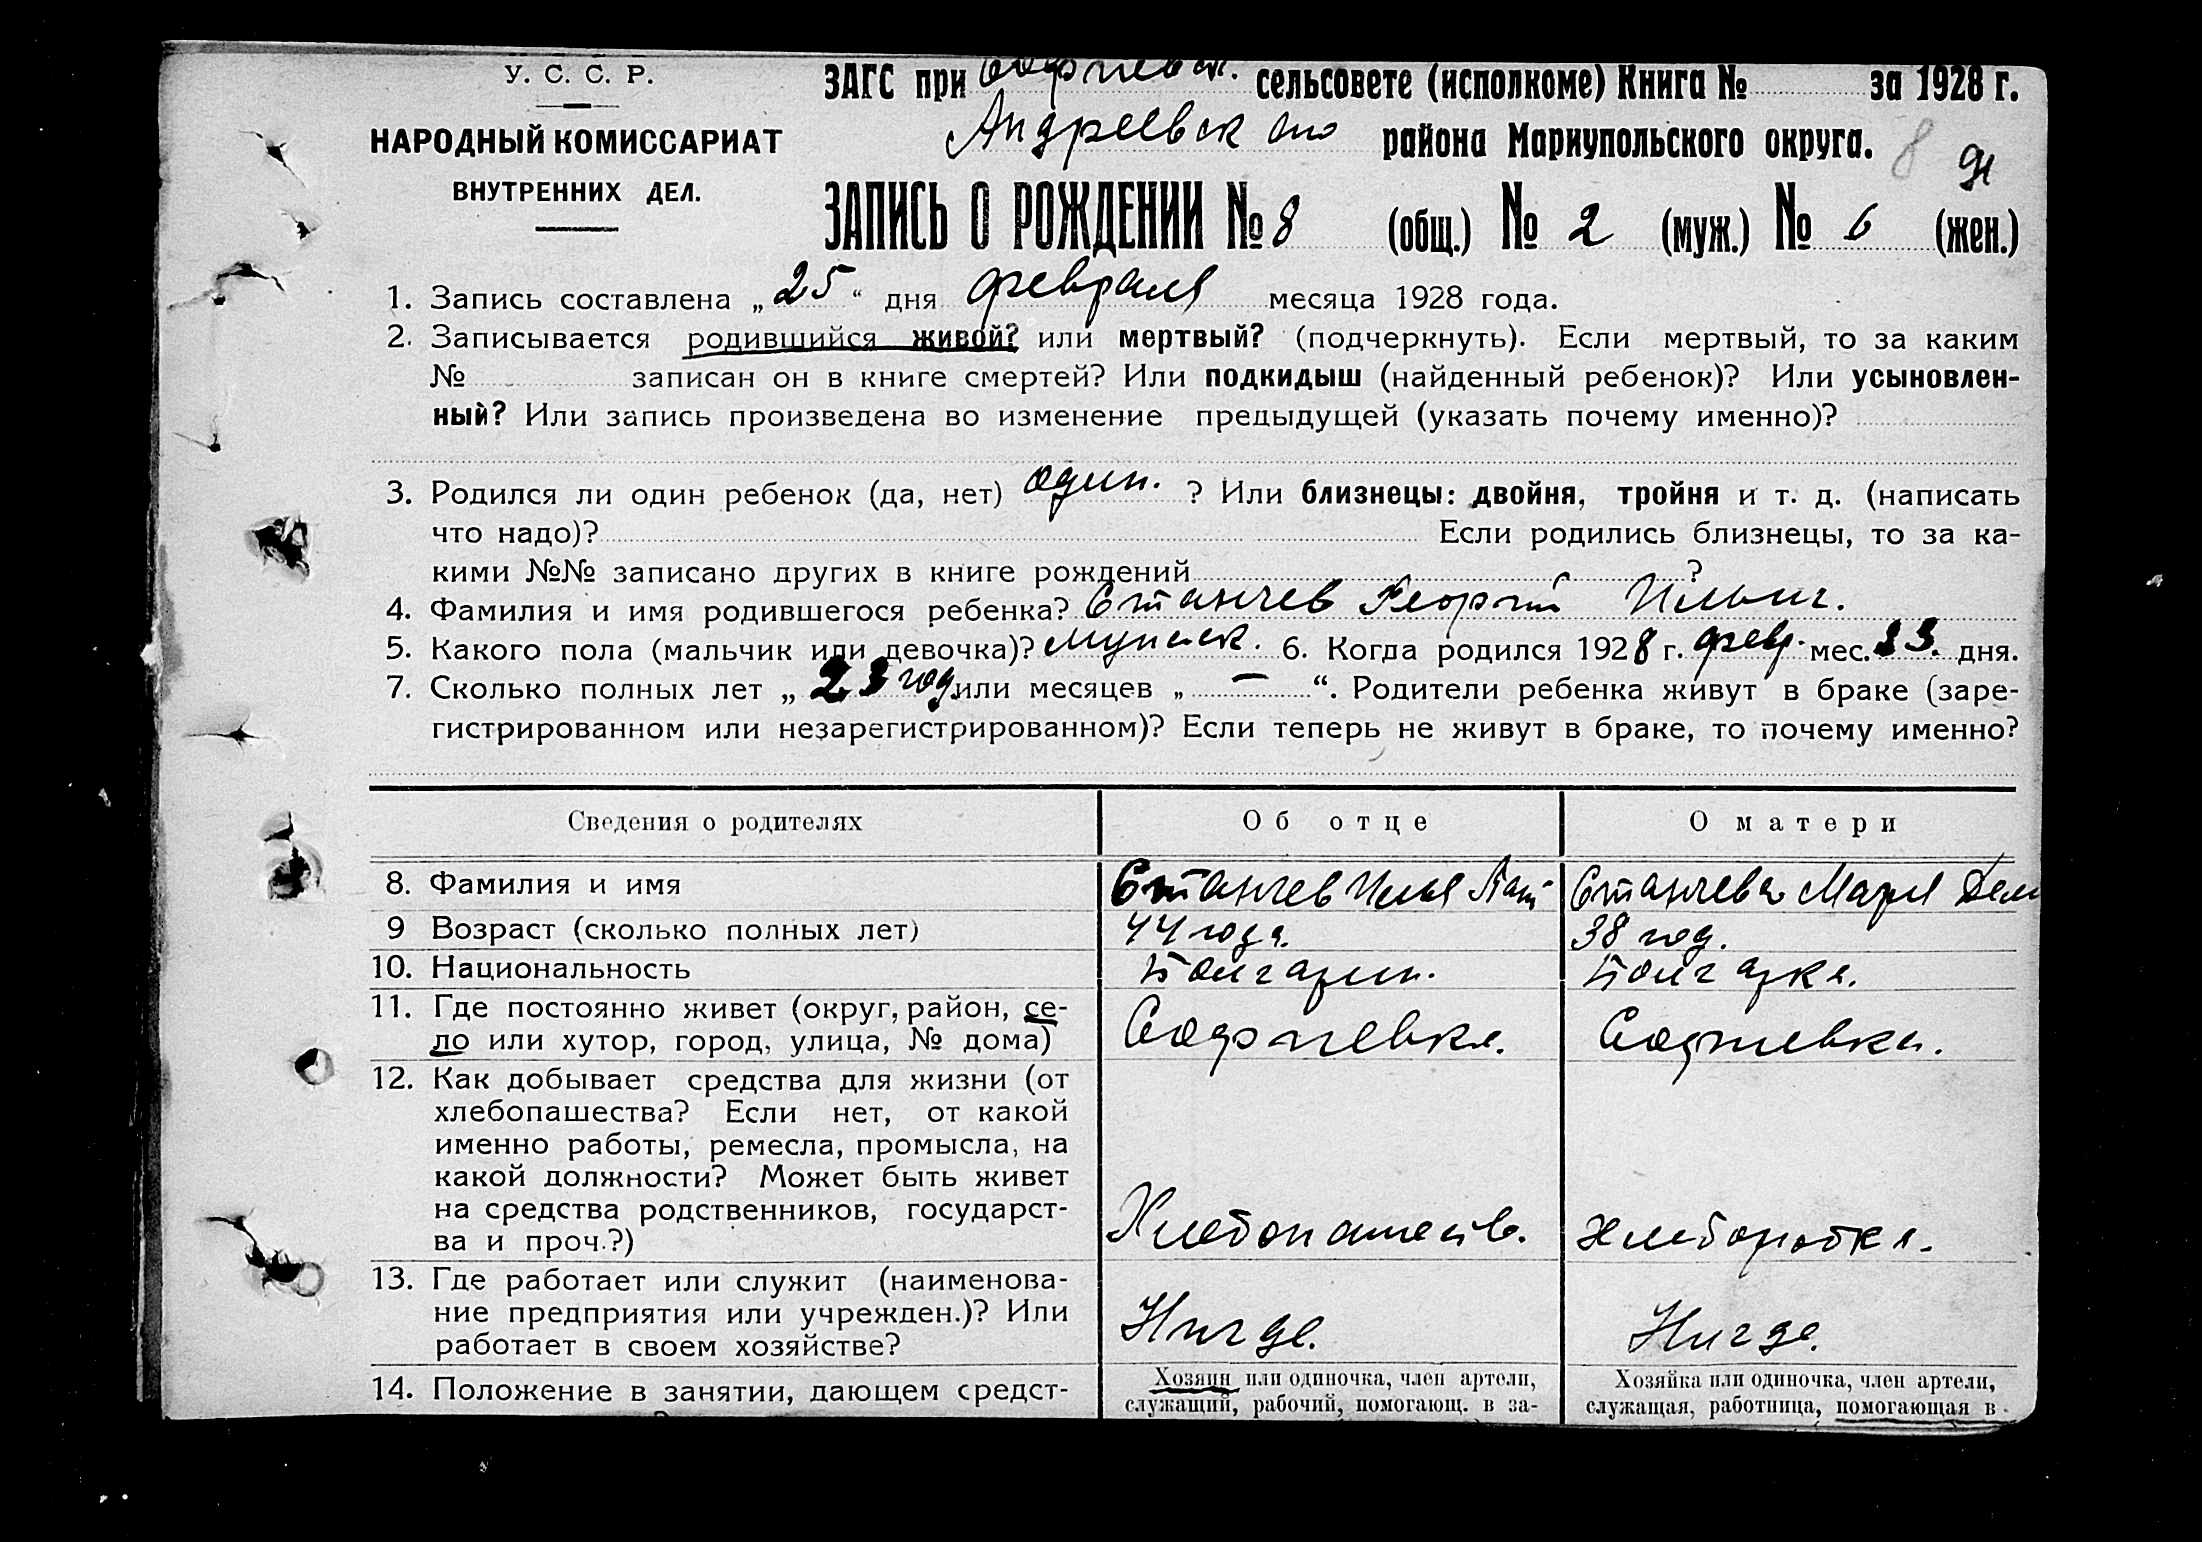 У. С. С. Р.
НАРОДНЫЙ КОМИССАРИАТ
ВНУТРЕННИХ ДЕЛ.
ЗАГС при Софиевск. сельсовете (исполкоме) Книга № за 1928 г.
Андреевского района Мариупольского округа.
8
ЗАПИСЬ О РОЖДЕНИИ № 8 (общ.) № 2 (муж.) № 6 (жен.)
1. Запись составлена „25“ дня февраля месяца 1928 года.
2. Записывается родившийся живой? или мертвый? (подчеркнуть). Если мертвый, то за каким
№ записан он в книге смертей? Или подкидыш (найденный ребенок)? Или усыновлен-
ный? Или запись произведена во изменение предыдущей (указать почему именно)?
3. Родился ли один ребенок (да, нет) один. ? Или близнецы: двойня, тройня и т. д. (написать
что надо)? Если родились близнецы, то за ка-
кими №№ записано других в книге рождений ?
4. Фамилия и имя родившегося ребенка? Станчев Георгий Ильич.
5. Какого пола (мальчик или девочка)? мужск. 6. Когда родился 1928 г. фев. мес. 23. дня.
7. Сколько полных лет „ 23 год или месяцев „ — “. Родители ребенка живут в браке (заре-
гистрированном или незарегистрированном)? Если теперь не живут в браке, то почему именно?
Сведения о родителях Об отце О матери
8. Фамилия и имя Станчев Илья Станчева Мария
9 Возраст (сколько полных лет) 44 года. 38 год.
10. Национальность Болгарин. Болгарка.
11. Где постоянно живет (округ, район, се-
ло или хутор, город, улица, № дома) Софиевка. Софиевка.
12. Как добывает средства для жизни (от
хлебопашества? Если нет, от какой
именно работы, ремесла, промысла, на
какой должности? Может быть живет
на средства родственников, государст-
ва и проч.?) Хлебопашеств. Хлеборобка.
13. Где работает или служит (наименова-
ние предприятия или учрежден.)? Или
работает в своем хозяйстве? Нигде. Нигде.
14. Положение в занятии, дающем средст-
Хозяин или одиночка, член артели,
служащий, рабочий, помогающ. в за-
Хозяйка или одиночка, член артели,
служащая, работница, помогающая в